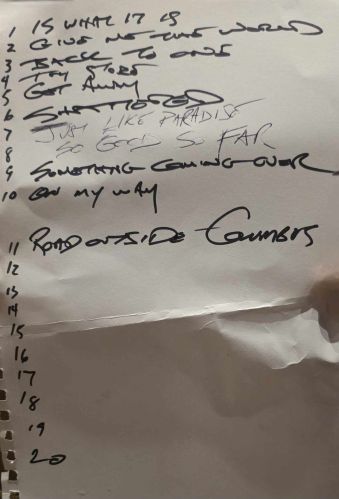 1 IS WHAT IT IS
2 GIVE ME THE WORLD
3 BACK TO ONE
4 TOY STORE
5 GET AWAY
6 SHATTERED
7 JUST LIKE PARADISE
8 SO GOOD SO FAR
9 SOMETHING COMING OVER
10 ON MY WAY
11 ROAD OUTSIDE COLUMBUS
12
13
14
15
16
17
18
19
20